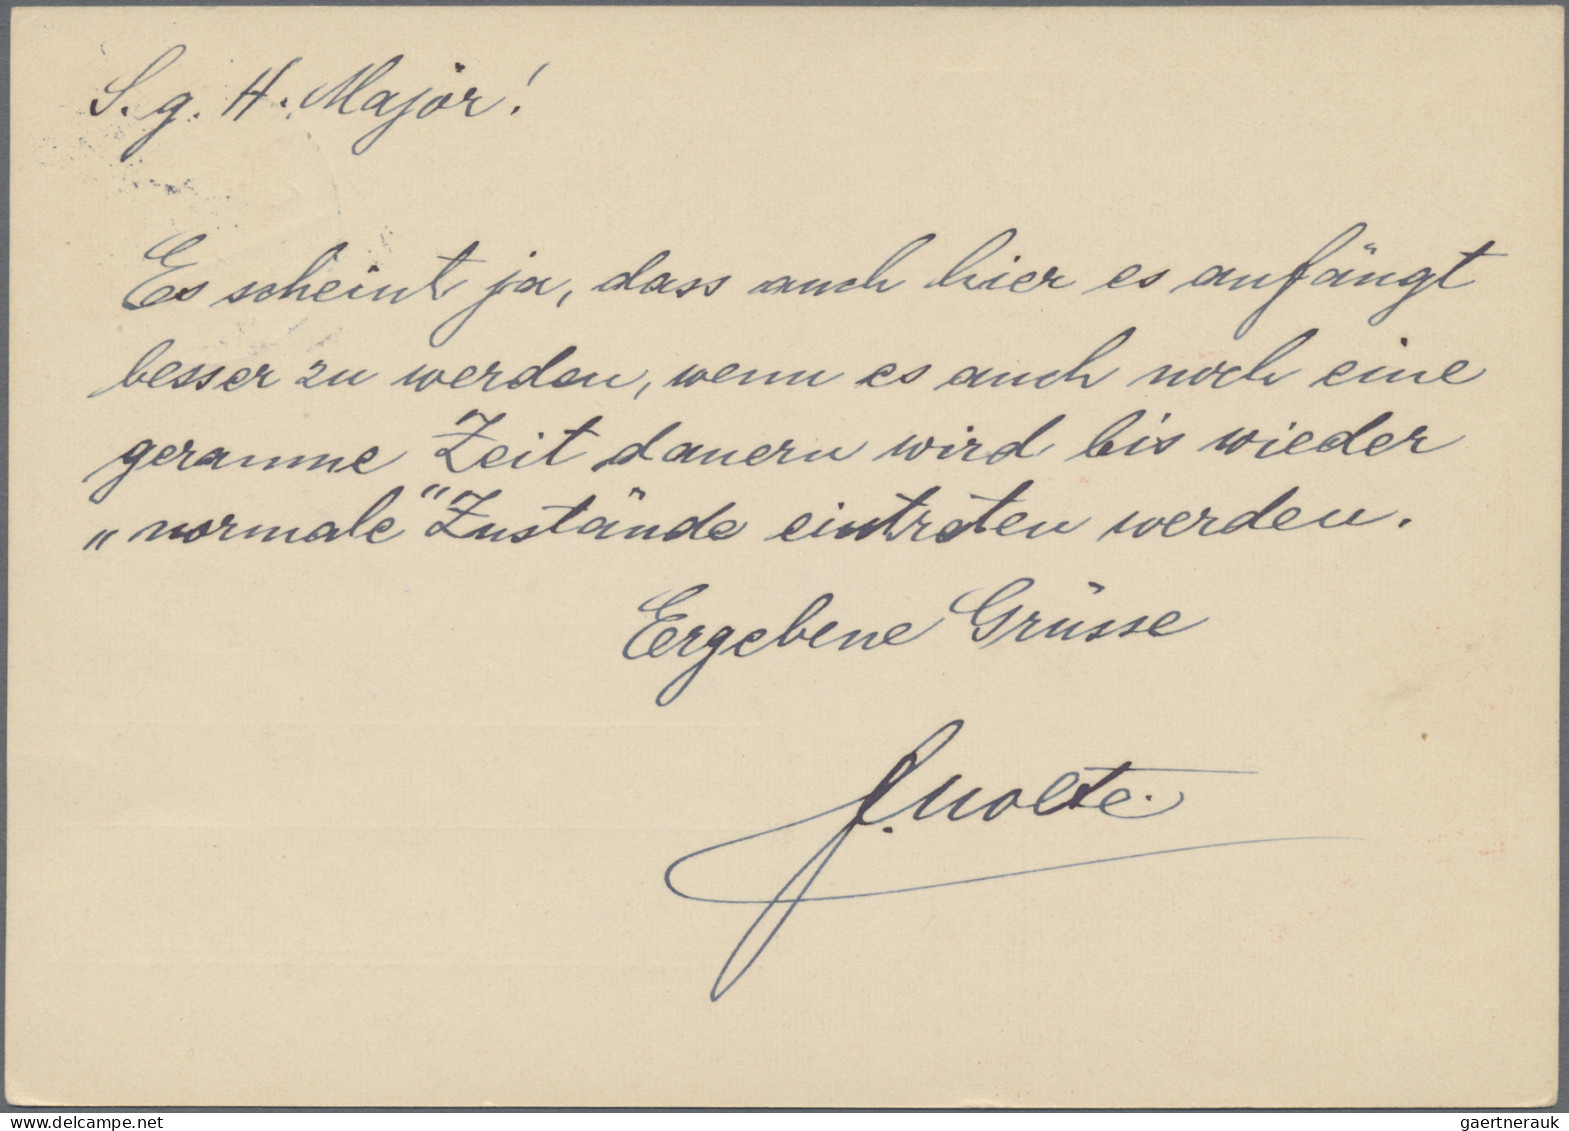 S. g. H. Major!
Es scheint ja, dass auch hier es anfängt
besser zu werden, wenn es auch noch eine
geraume Zeit dauern wird bis wieder
„normale“ Zustände eintreten werden.
Ergebene Grüsse
J. Nolte.
gaertnerauk